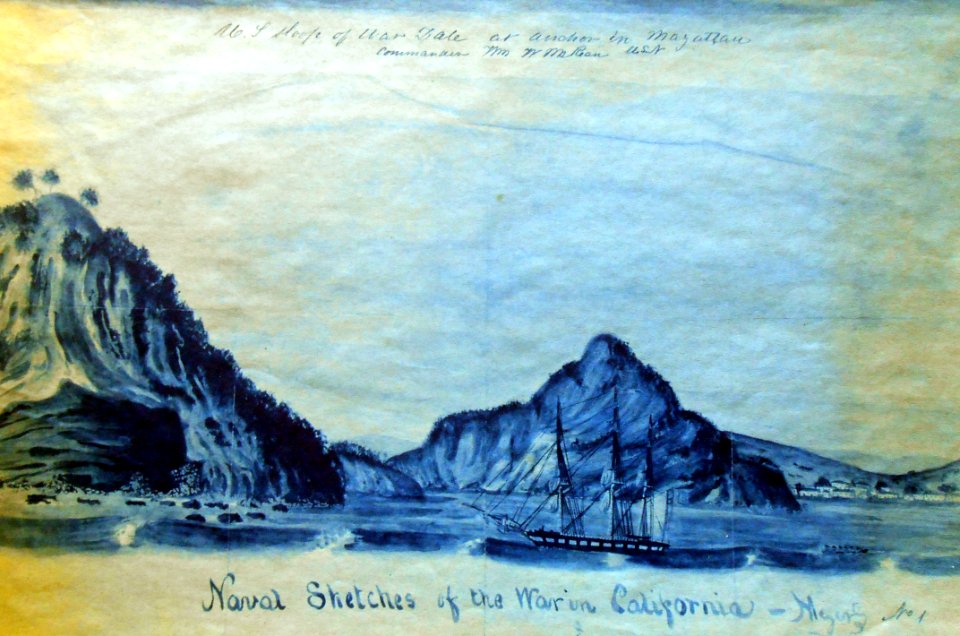 U.S Sloop of War Dale at anchor in Mazatlan
Commander Wm W McKean USN
Naval Sketches of the War in California – No 1